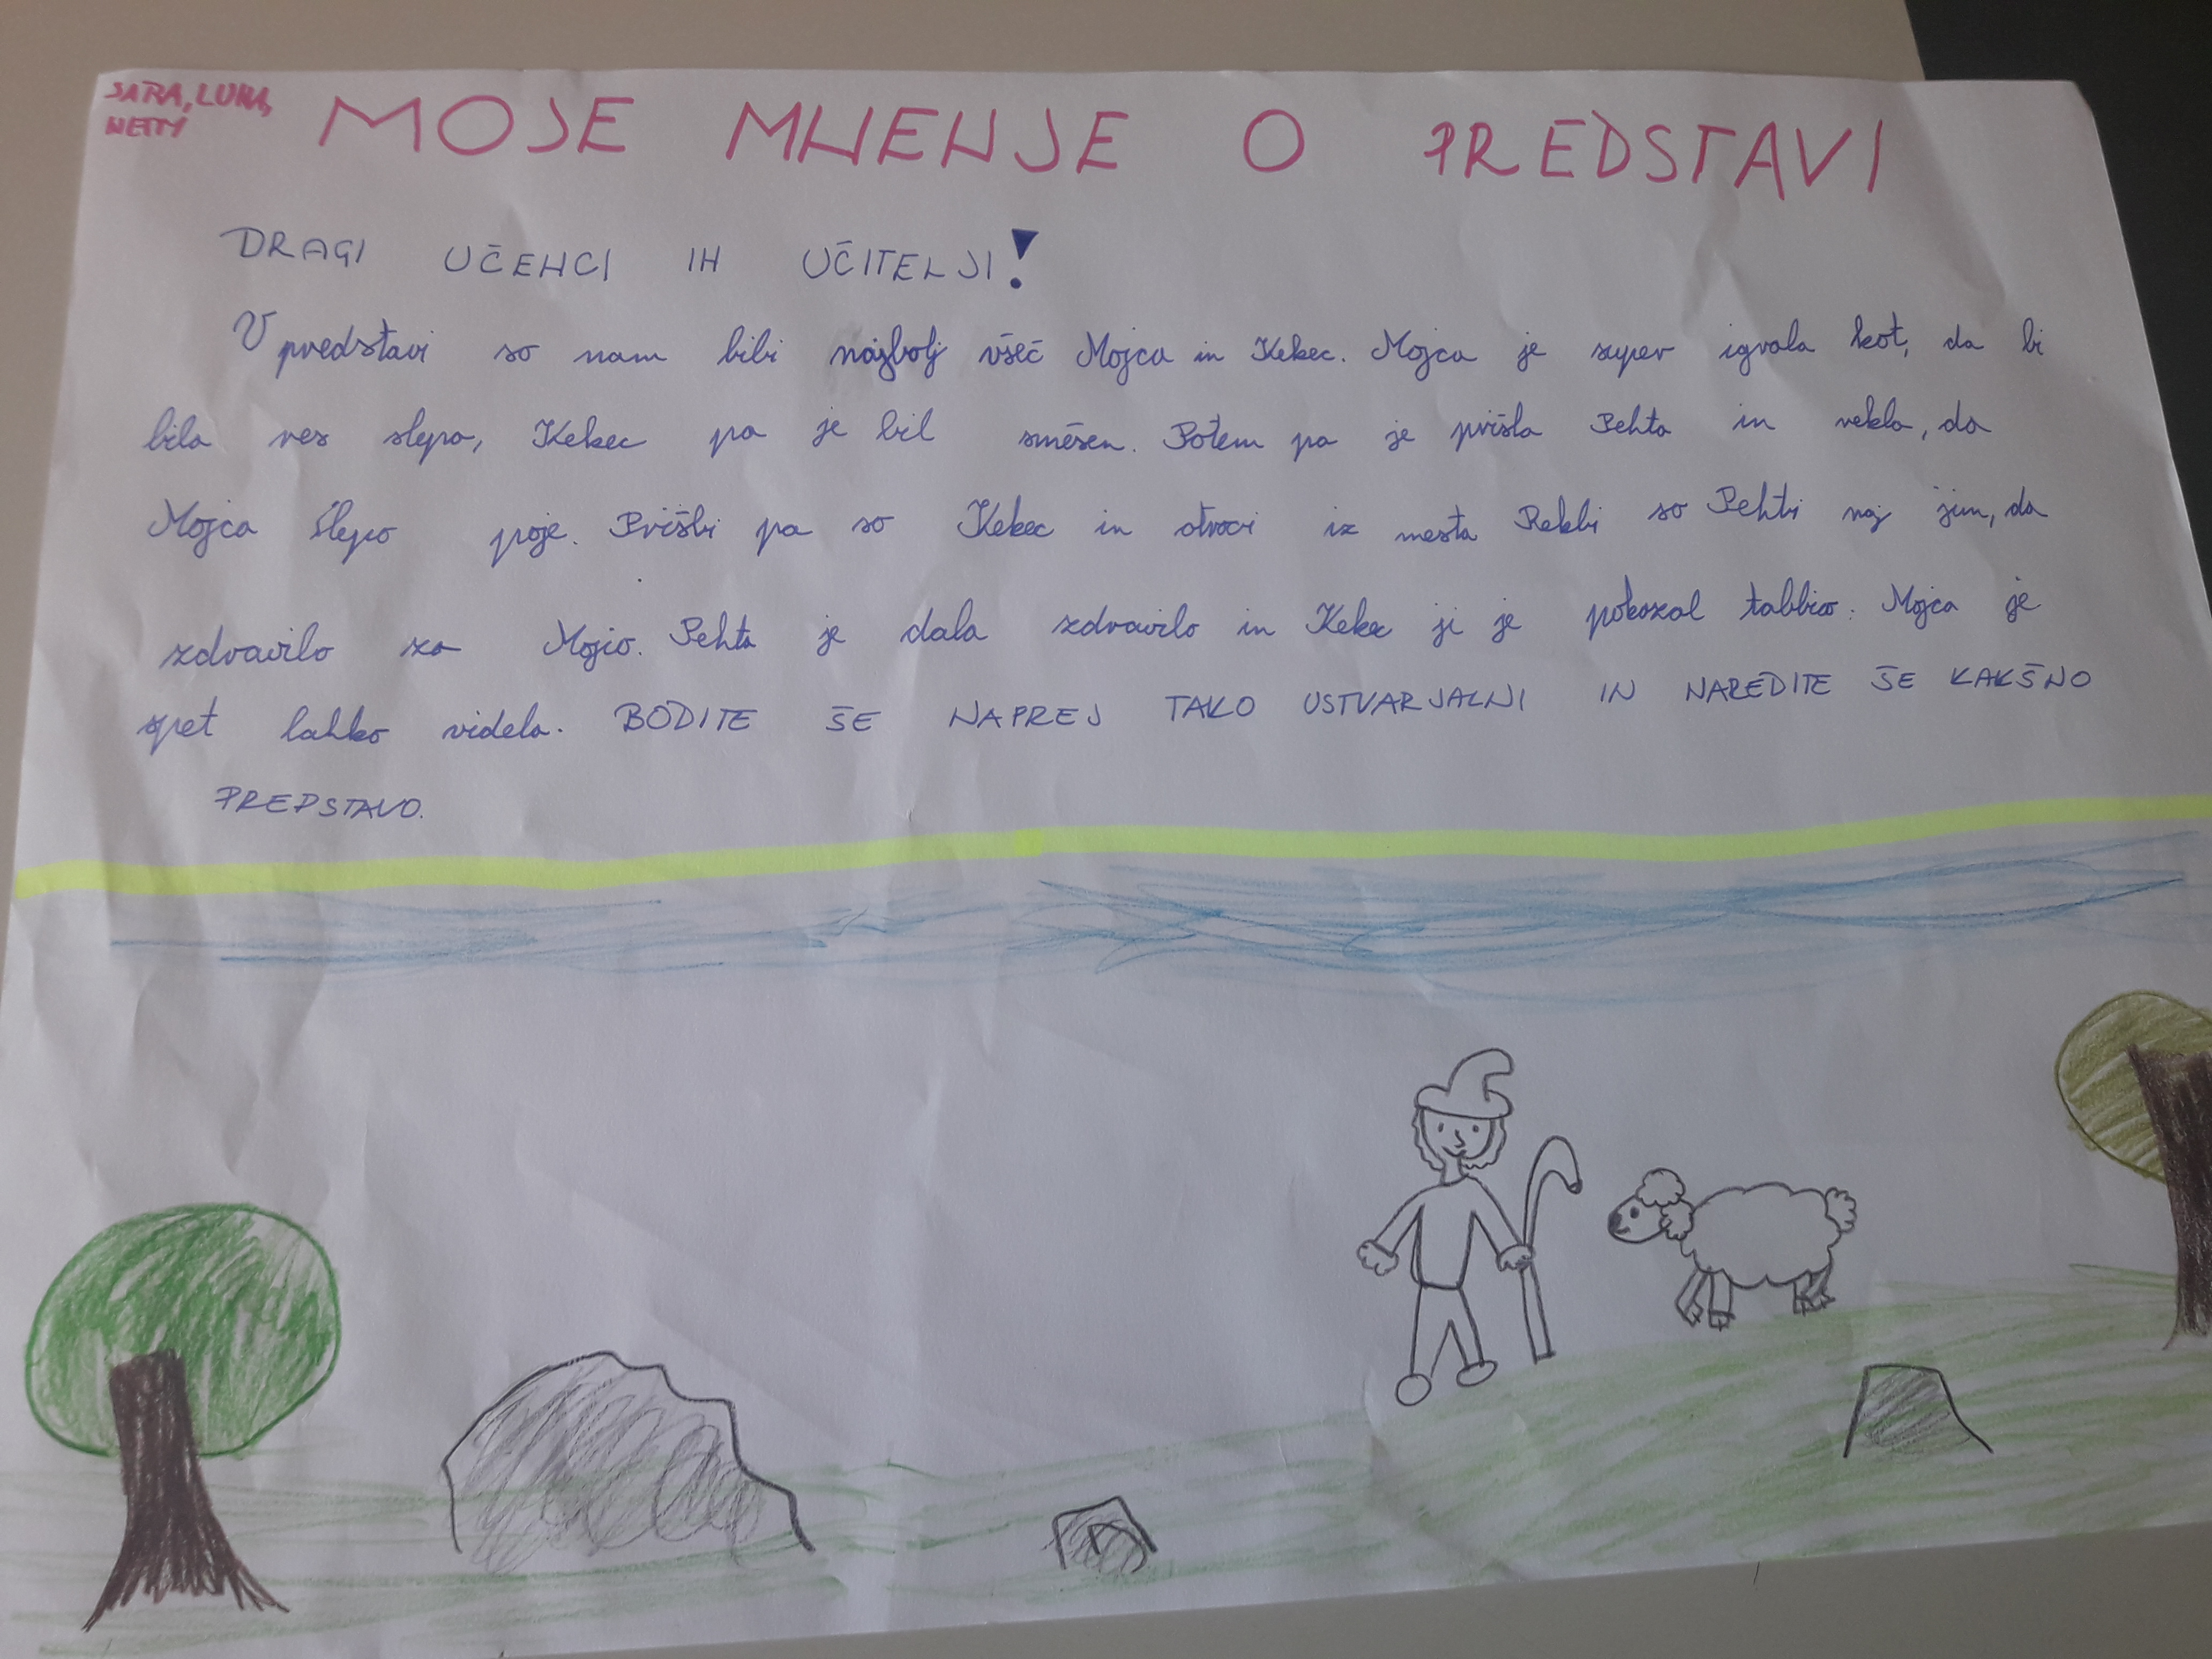 SARA, LUKA,
NETTY
MOJE MNENJE O PREDSTAVI
DRAGI UČENCI IN UČITELJI!
V predstavi so nam bili najbolj všeč Mojca in Kekec. Mojca je super igrala kot, da bi
bila res slepa, Kekec pa je bil smešen. Potem pa je prišla Pehta in rekla, da
Mojca lepo poje. Prišli pa so Kekec in otroci iz mesta Rekli so Pehti naj jim, da
zdravilo za Mojco. Pehta je dala zdravilo in Kekec ji je pokazal tablico. Mojca je
spet lahko videla. BODITE ŠE NAPREJ TAKO USTVARJALNI IN NAREDITE ŠE KAKŠNO
PREDSTAVO.